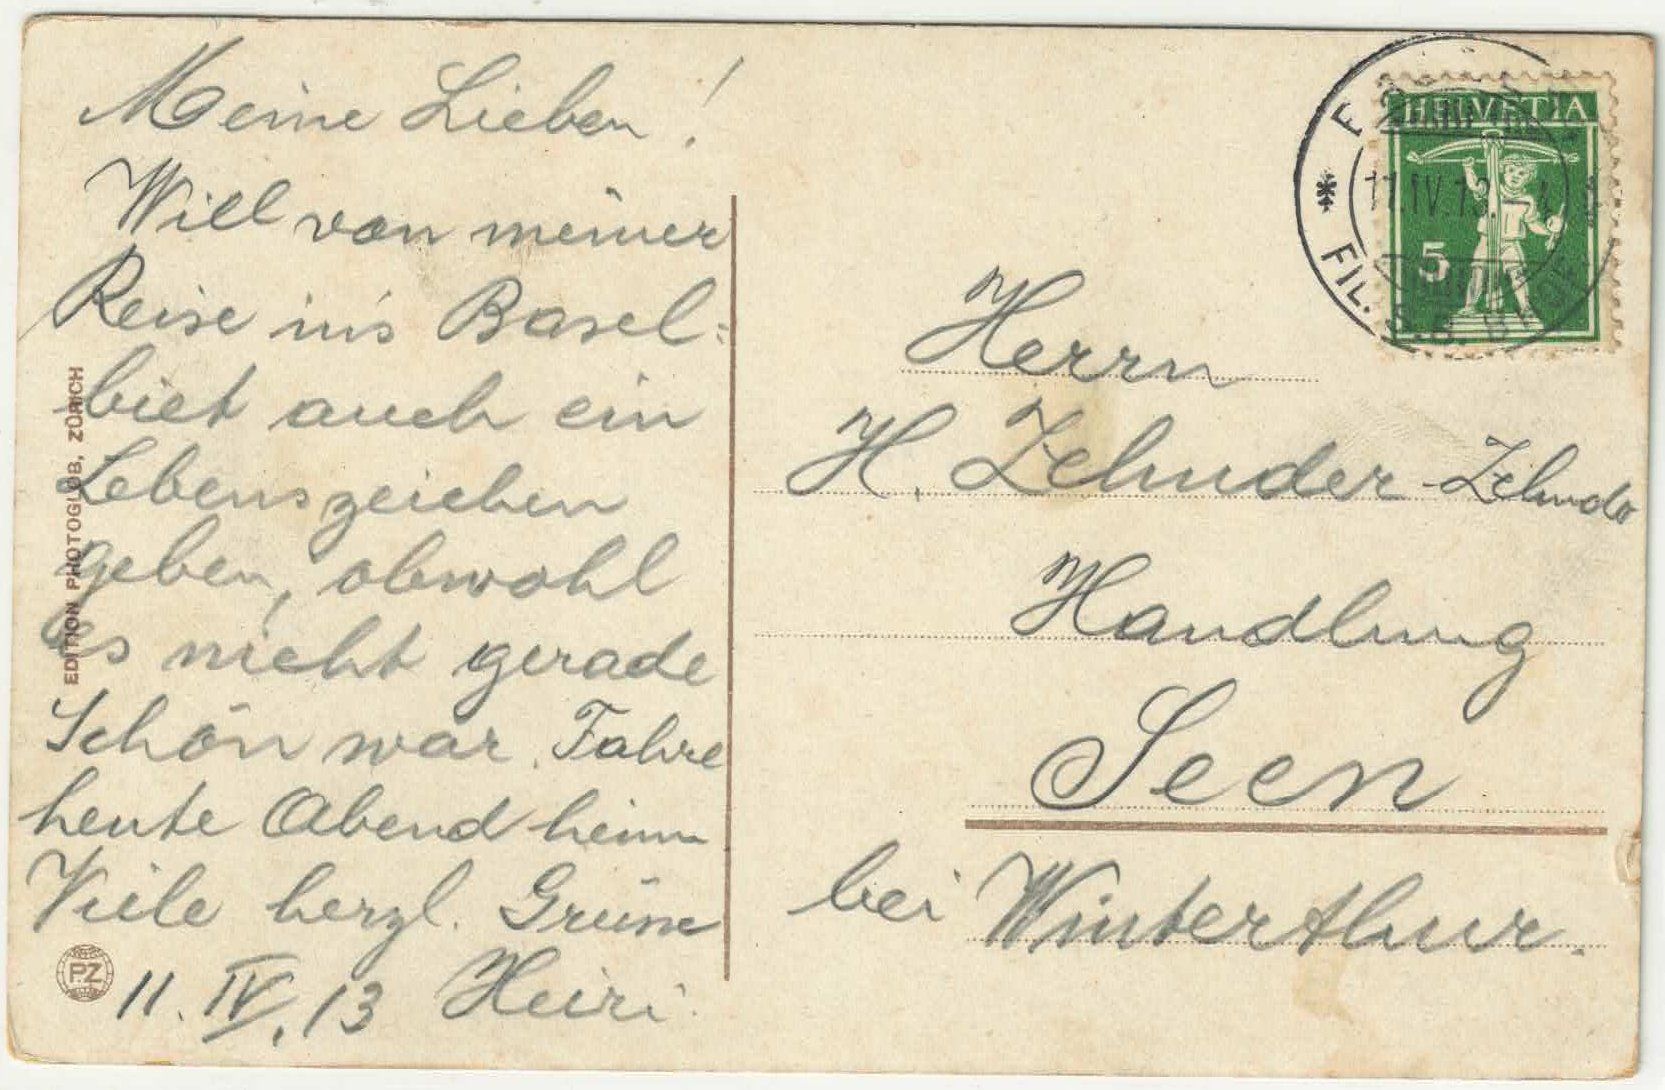 Meine Lieben!
Will von meiner
Reise in's Basel-
biet auch ein
Lebenszeichen
geben, obwohl
es nicht gerade
Schön war. Fahre
heute Abend heim
Viele herzl. Grüsse
11. IV. 13 Heiri.
EDITION PHOTOGLOB, ZÜRICH
PZ
HELVETIA
5
11.IV.13
FIL.
Herrn
H. Zehnder-Zehnder
Handlung
Seen
bei Winterthur.